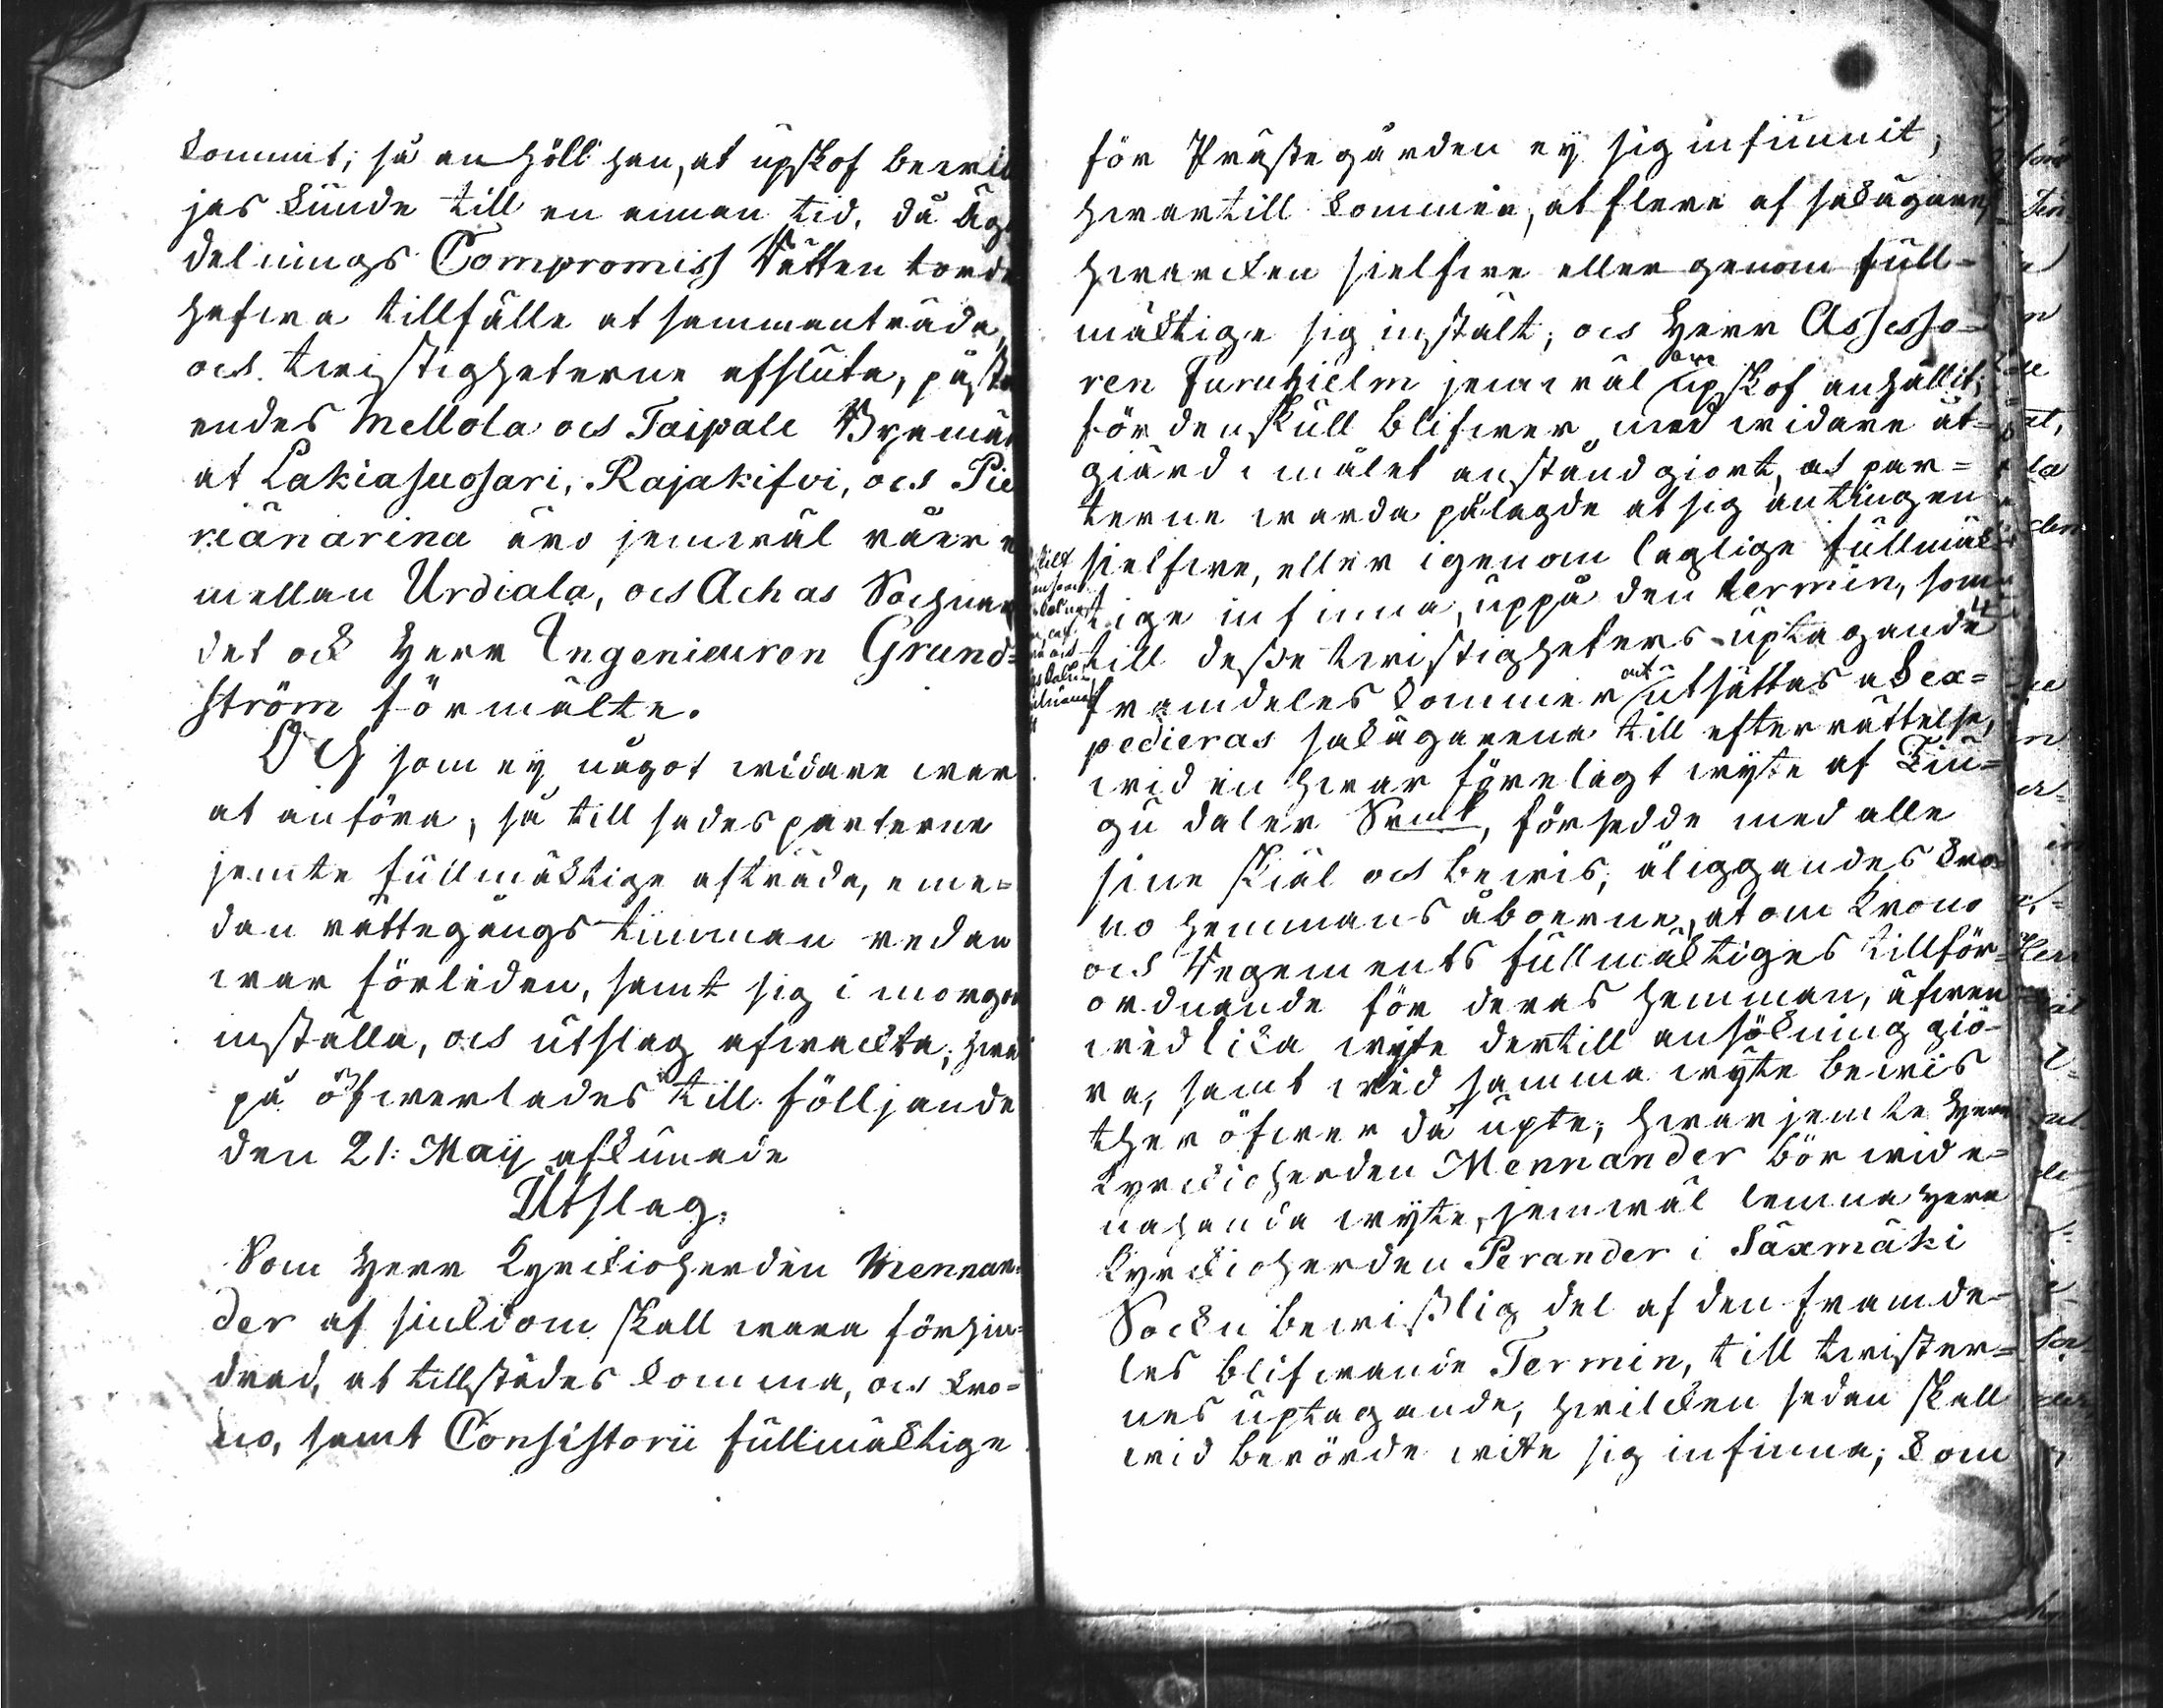 kommit; så an höllt han, at upskof bewil
jas kunde till en annan tid, då Äg
delnings Compromiss Rätten torde
hafwa tillfälle at sammanträda,
och twistigheterne afsluta, påstå
endes Mellola och Taipale Byemän
at Lakiasuosari, Rajakifvi, och Pie
niänarina äro jemwäl råer e
mellan Urdiala, och Achas Sochnar
det ock Herr Ingenieuren Grund=
ström förmälte.
Och som ey något widare war
at anföra, så till sades parterne
jemte fullmäktige afträda, eme=
dan rättegångs timman redan
war förliden, samt sig i morgon
inställa, och utslag afwackta; hwar
på öfwerlades till följande
den 21: Maij afkunnade
Utslag.
Som Herr Kyrckioherden Mennan=
der af siukdom skall wara förhin=
drad, at tillstädes komma, och Kro=
no, samt Consistorii fullmäktige
för Prästegården ey sig infunnit,
hwartill kommer, at flere af sakägare,
hwarcken sielfwe eller genom full=
mäktige sig instält; och Herr Assesso=
ren Furuhielm jemwäl om upskof anhållit;
för denskull blifwer med widare åt=
giärd i målet anstånd giort, och par=
terne warda pålagde at sig antingen
sielfwe, eller igenom laglige fullmäk
tige infinna, uppå den termin, som
till desse twistigheters uptagande
framdeles kommer at utsättas och ex=
pedieras sakägarena till efterrättelse,
wid en hwar förelagt wyte af Tiu=
gu daler Srmt, försedde med alle
sine skiäl och bewis; åliggandes kro=
no hemmans åboerne, at om Krono
och Regements fullmäktiges tillför=
ordnande för deras hemman, äfwen
wid lika wyte dertill ansökning giö=
ra, samt wid samma wyte bewis
ther öfwer då upte; hwarjemte Herr
Kyrckioherden Mennander bör wid e=
nahanda wyte, jemwäl lemna Herr
Kyrckioherden Perander i Säxmäki
Sockn bewisslig del af den framde=
les blifwande Termin, till twister=
nes uptagande, hwilcken sedan skall
wid berörde wite sig infinna; Som